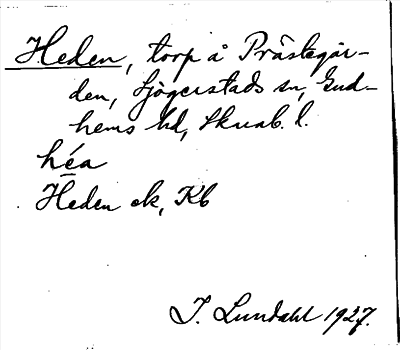 Heden, torp å Prästegår-
den, Sjögerstads sn, Gud-
hems hd, Skarab. l.
héa
Heden ek, Kb
I. Lundahl 1927.